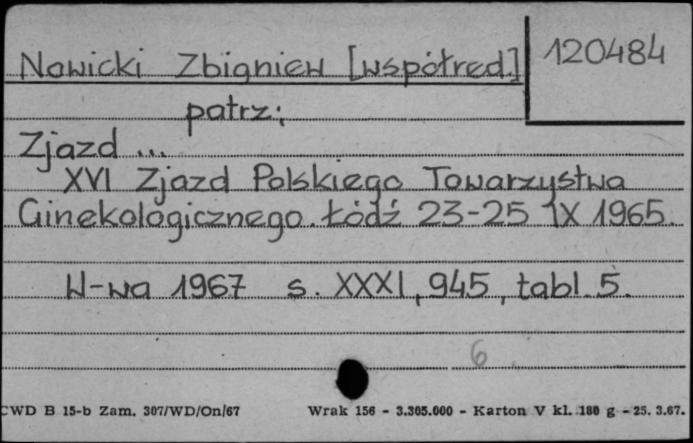 Nowicki Zbigniew [współred.]
120484
patrz:
Zjazd ...
XVI Zjazd Polskiego Towarzystwa
Ginekologicznego. Łódź 23-25 IX 1965.
W-wa 1967 s. XXXI, 945, tabl. 5.
6
CWD B 15-b Zam. 307/WD/On/67 Wrak 156 - 3.305.000 - Karton V kl. 180 g - 25. 3.67.